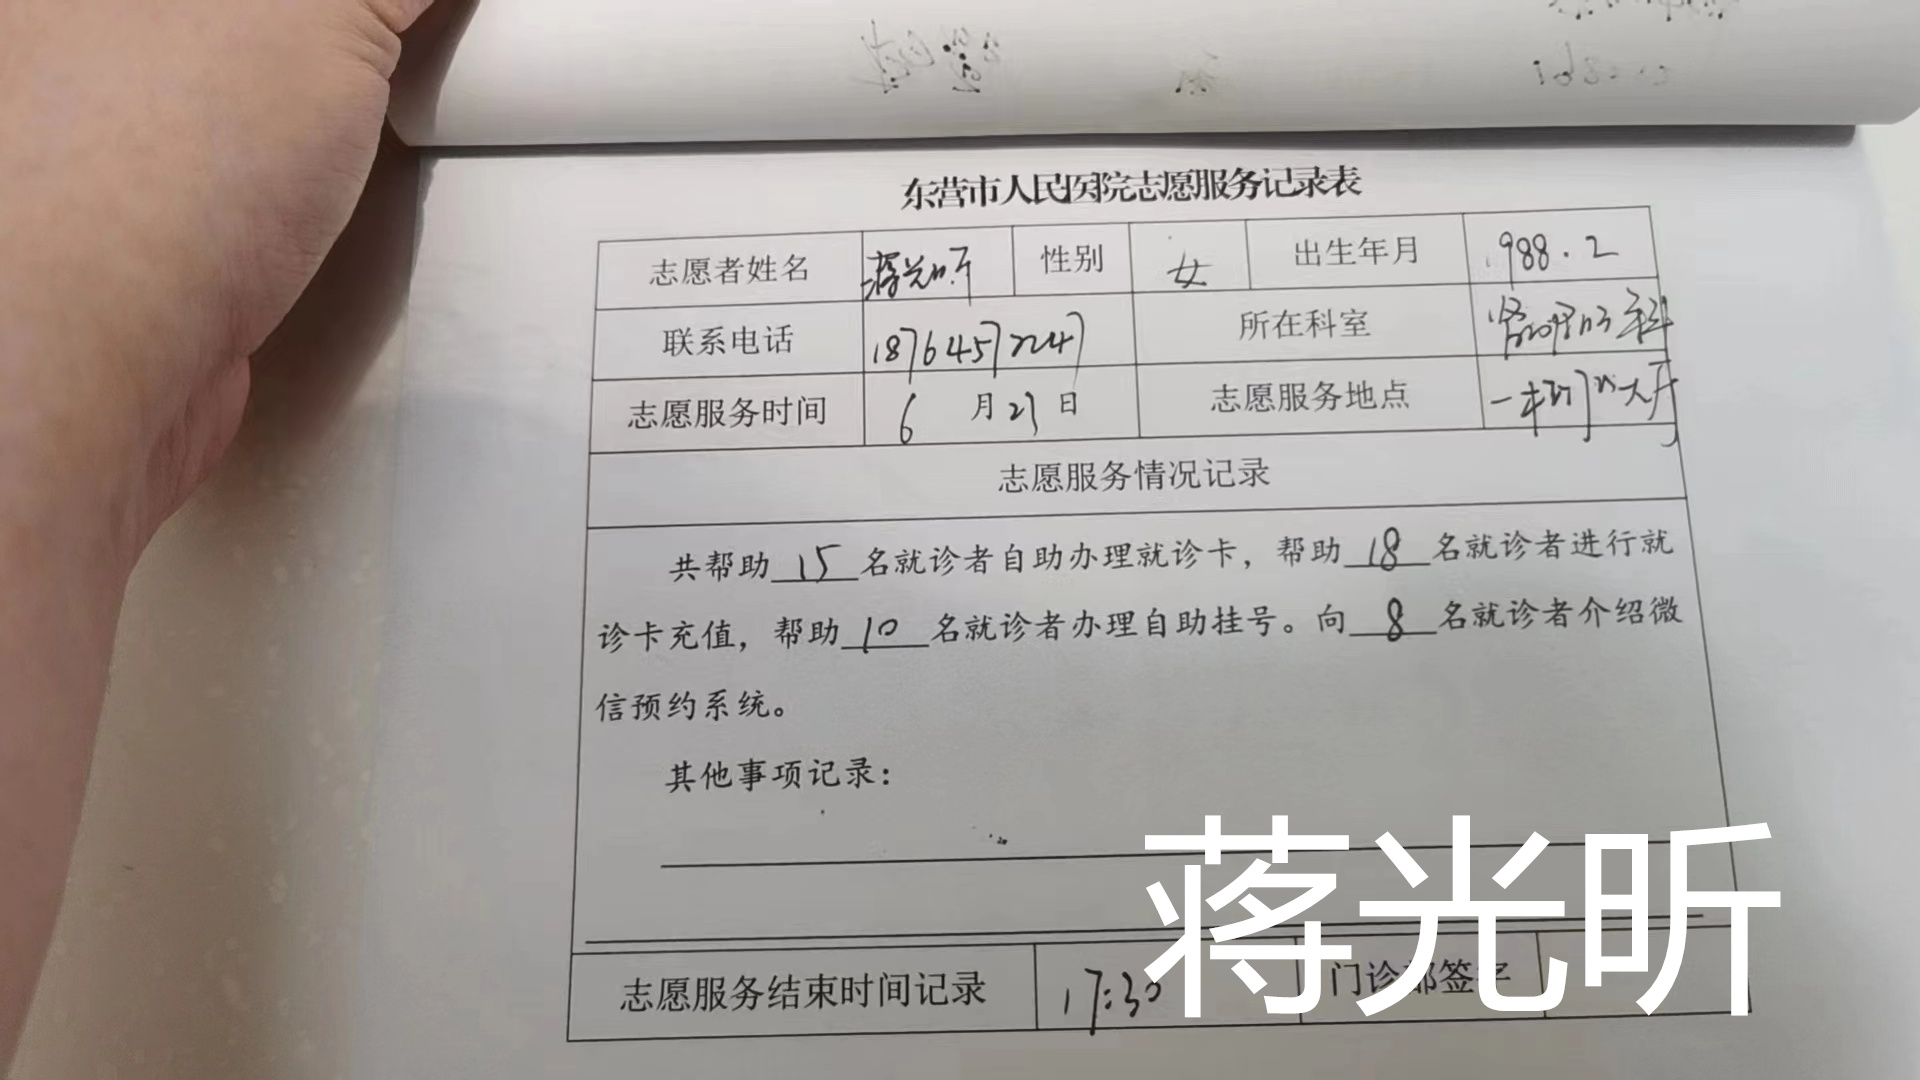 东营市人民医院志愿服务记录表
志愿者姓名 蒋光昕 性别 女 出生年月 1988.2
联系电话 18764577247 所在科室 科
志愿服务时间 6月21日 志愿服务地点 一楼门诊大厅
志愿服务情况记录
共帮助15名就诊者自助办理就诊卡，帮助18名就诊者进行就
诊卡充值，帮助10名就诊者办理自助挂号。向8名就诊者介绍微
信预约系统。
其他事项记录：
志愿服务结束时间记录 17:30 门诊部签字
蒋光昕